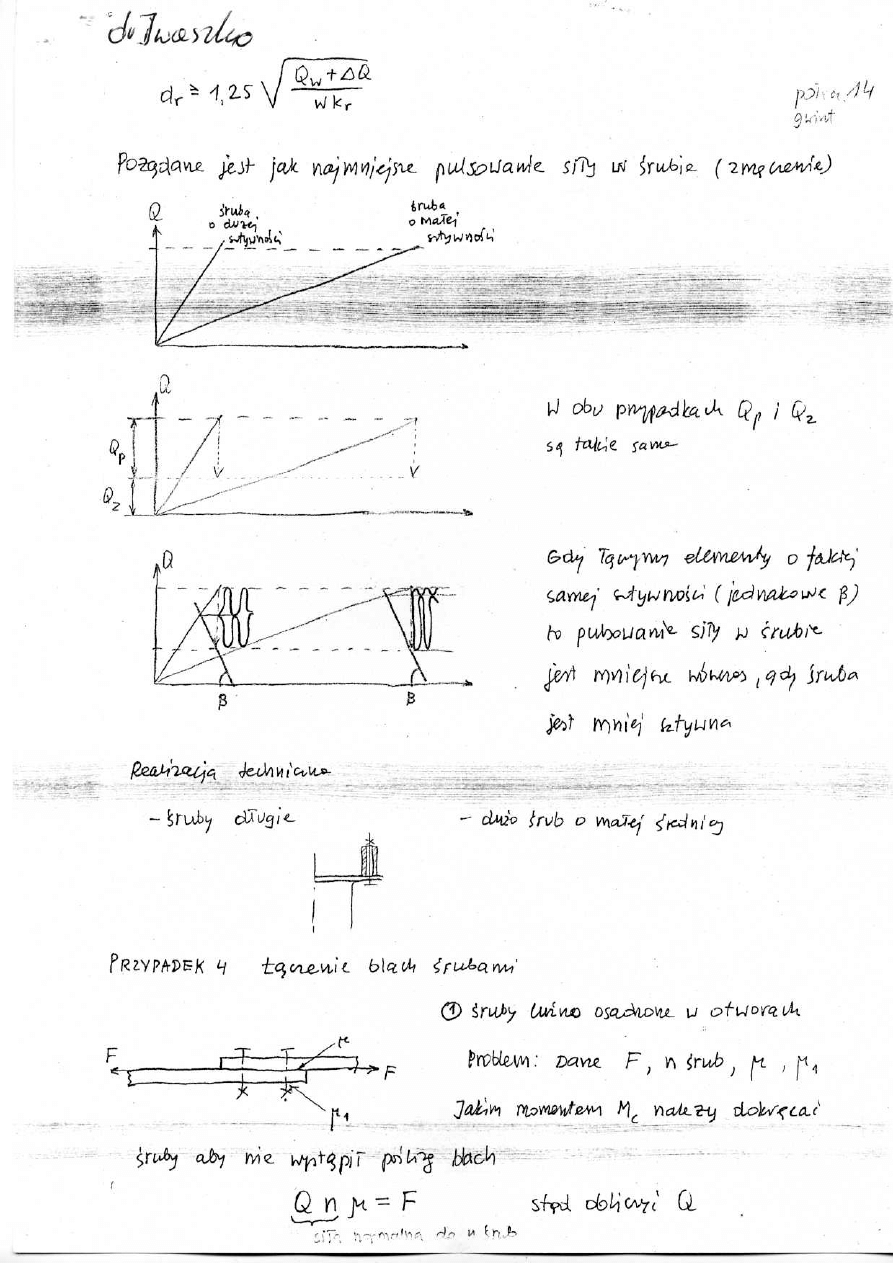 dr Iwaszko
dr ≥ 1,25 √((Qw + ΔQ) / (w kr))
14
gwint
Pożądane jest jak najmniejsze pulsowanie siły w śrubie (zmęczenie)
Q
śruba
o dużej
sztywności
śruba
o małej
sztywności
Q
Qp
Qz
W obu przypadkach Qp i Qz
są takie same
Q
β
β
Gdy łączymy elementy o takiej
samej sztywności (jednakowe β)
to pulsowanie siły w śrubie
jest mniejsze wówczas, gdy śruba
jest mniej sztywna
Realizacja techniczna
- śruby długie
- dużo śrub o małej średnicy
PRZYPADEK 4 Łączenie blach śrubami
① śruby luźno osadzone w otworach
F
μ
F
μ1
Problem: Dane F, n śrub, μ, μ1
Jakim momentem Mc należy dokręcać
śruby aby nie wystąpił poślizg blach
Q n μ = F
stąd obliczyć Q
siła normalna do n śrub